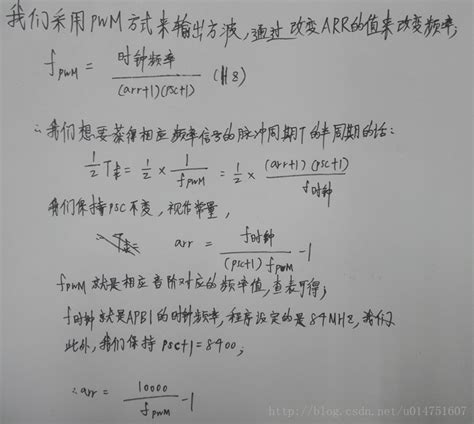 我们采用PWM方式来输出方波,通过改变ARR的值来改变频率;
f_PWM = 时钟频率 / (arr+1)(psc+1) (Hz)
∴我们想要获得相应频率信号的脉冲周期T的半周期的话:
1/2 T = 1/2 × 1/f_PWM = 1/2 × (arr+1)(psc+1) / f时钟
我们保持psc不变,视作常量,
arr = f时钟 / (psc+1) f_PWM - 1
f_PWM 就是相应音阶对应的频率值,查表可得;
f时钟就是APB1的时钟频率,程序设定的是84MHz,我们
此外,我们保持 psc+1=8400;
∴arr = 10000 / f_PWM - 1
http://blog.csdn.net/u014751607